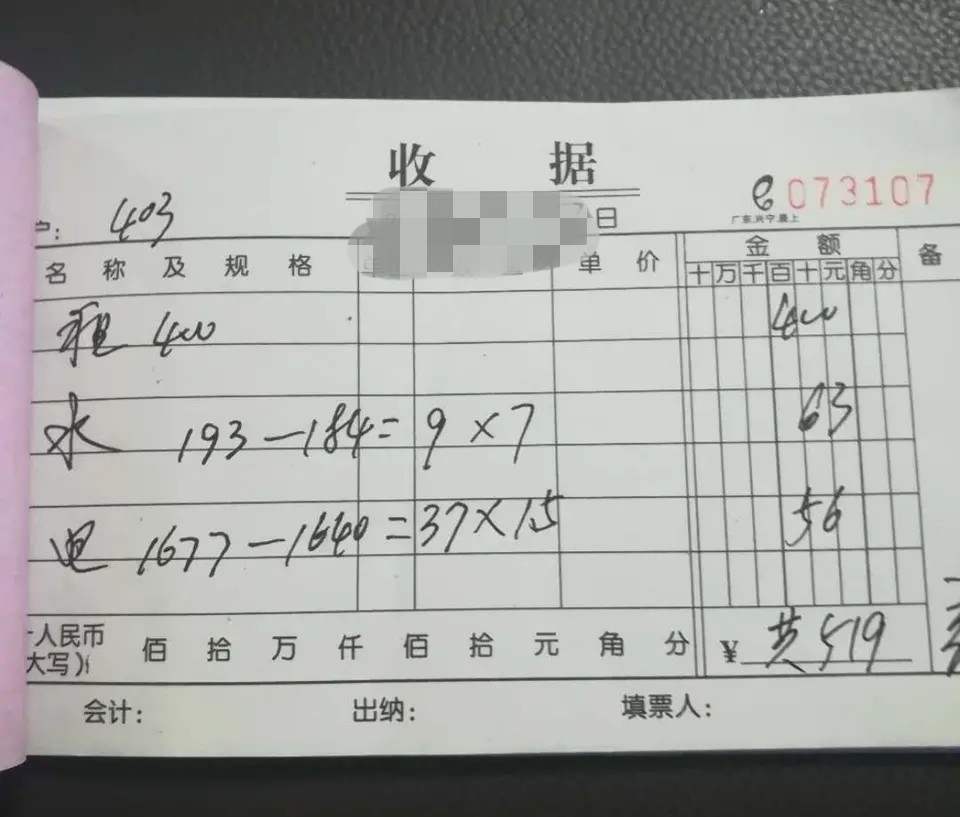 收 据
073107
广东.兴宁.晨上
户: 403
日
名 称 及 规 格 单 价 金 额 备
十 万 千 百 十 元 角 分
租 400 400
水 193-184=9×7 63
电 1677-1640=37×1.5 56
人民币
大写) 佰 拾 万 仟 佰 拾 元 角 分 ¥ 共519
会计: 出纳: 填票人: